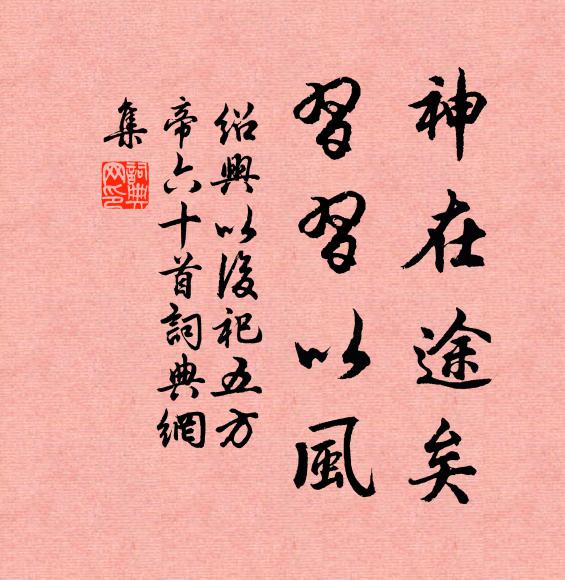 神在途矣
習習以風
紹興以後祀五方
帝六十首詞典網
集
詞典
网印